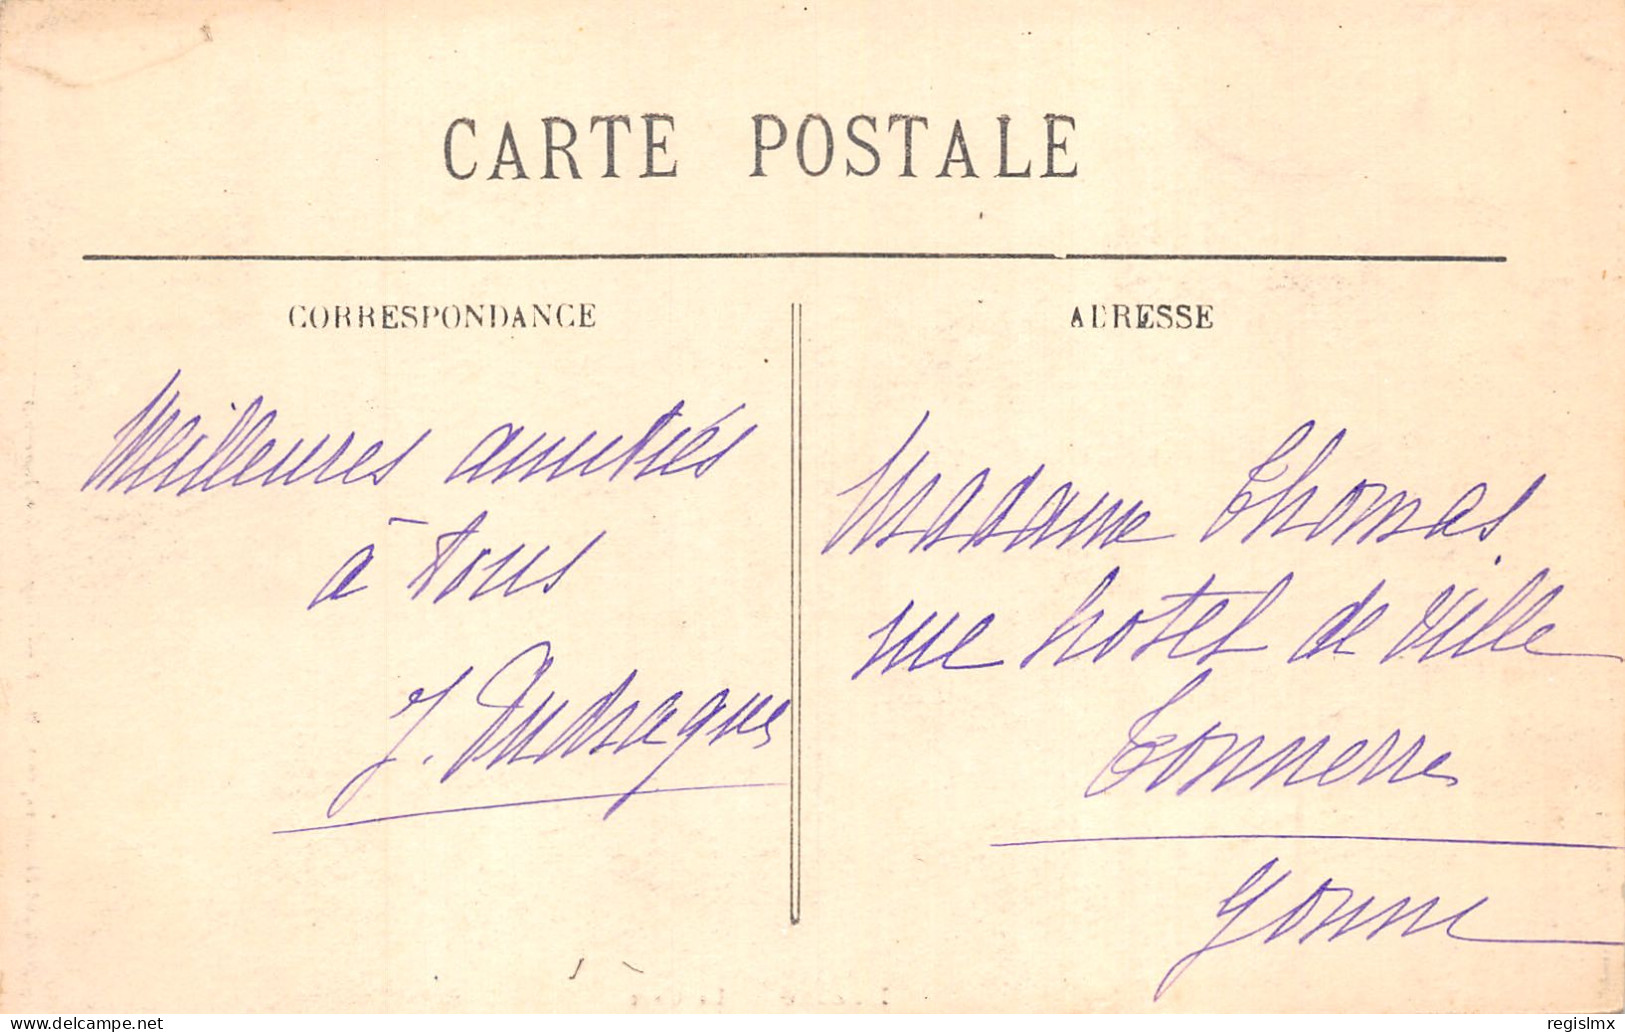 CARTE POSTALE
CORRESPONDANCE
ADRESSE
Meilleures amitiés
à tous
J.
Madame Thomas
rue hotel de Ville
Tonnerre
Yonne
delcampe.net
regislmx